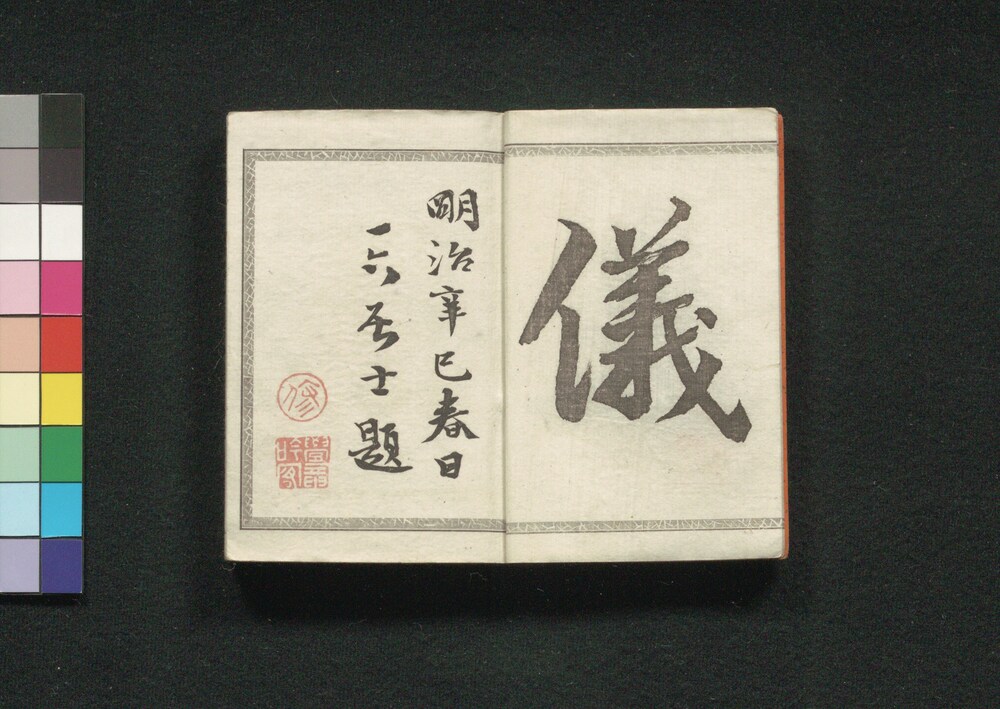 儀
明治辛巳春日
一六居士題
修